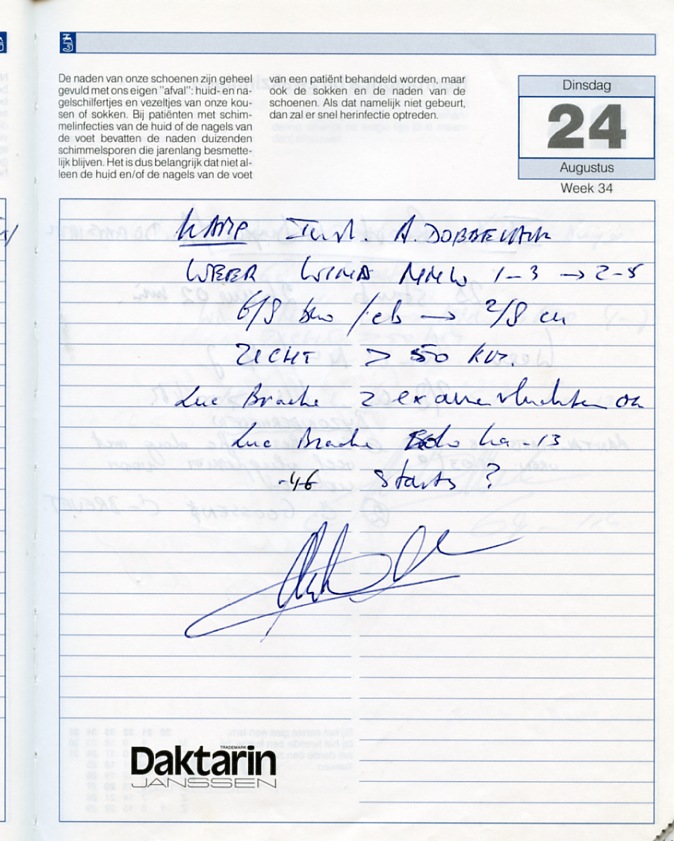 De naden van onze schoenen zijn geheel
gevuld met ons eigen "afval": huid- en na-
gelschilfertjes en vezeltjes van onze kou-
sen of sokken. Bij patiënten met schim-
melinfecties van de huid of de nagels van
de voet bevatten de naden duizenden
schimmelsporen die jarenlang besmette-
lijk blijven. Het is dus belangrijk dat niet al-
leen de huid en/of de nagels van de voet
van een patiënt behandeld worden, maar
ook de sokken en de naden van de
schoenen. Als dat namelijk niet gebeurt,
dan zal er snel herinfectie optreden.
Dinsdag
24
Augustus
Week 34
KAMP Inst. A. DOBBELAER
WEER WIND NNW 1-3 → 2-5
6/8 /cb → 2/8 cu
ZICHT > 50 km.
Luc Brache 2 examenvluchten on
Luc Brache Solo ka-13
-46 Starts ?
TRADEMARK
Daktarin
JANSSEN